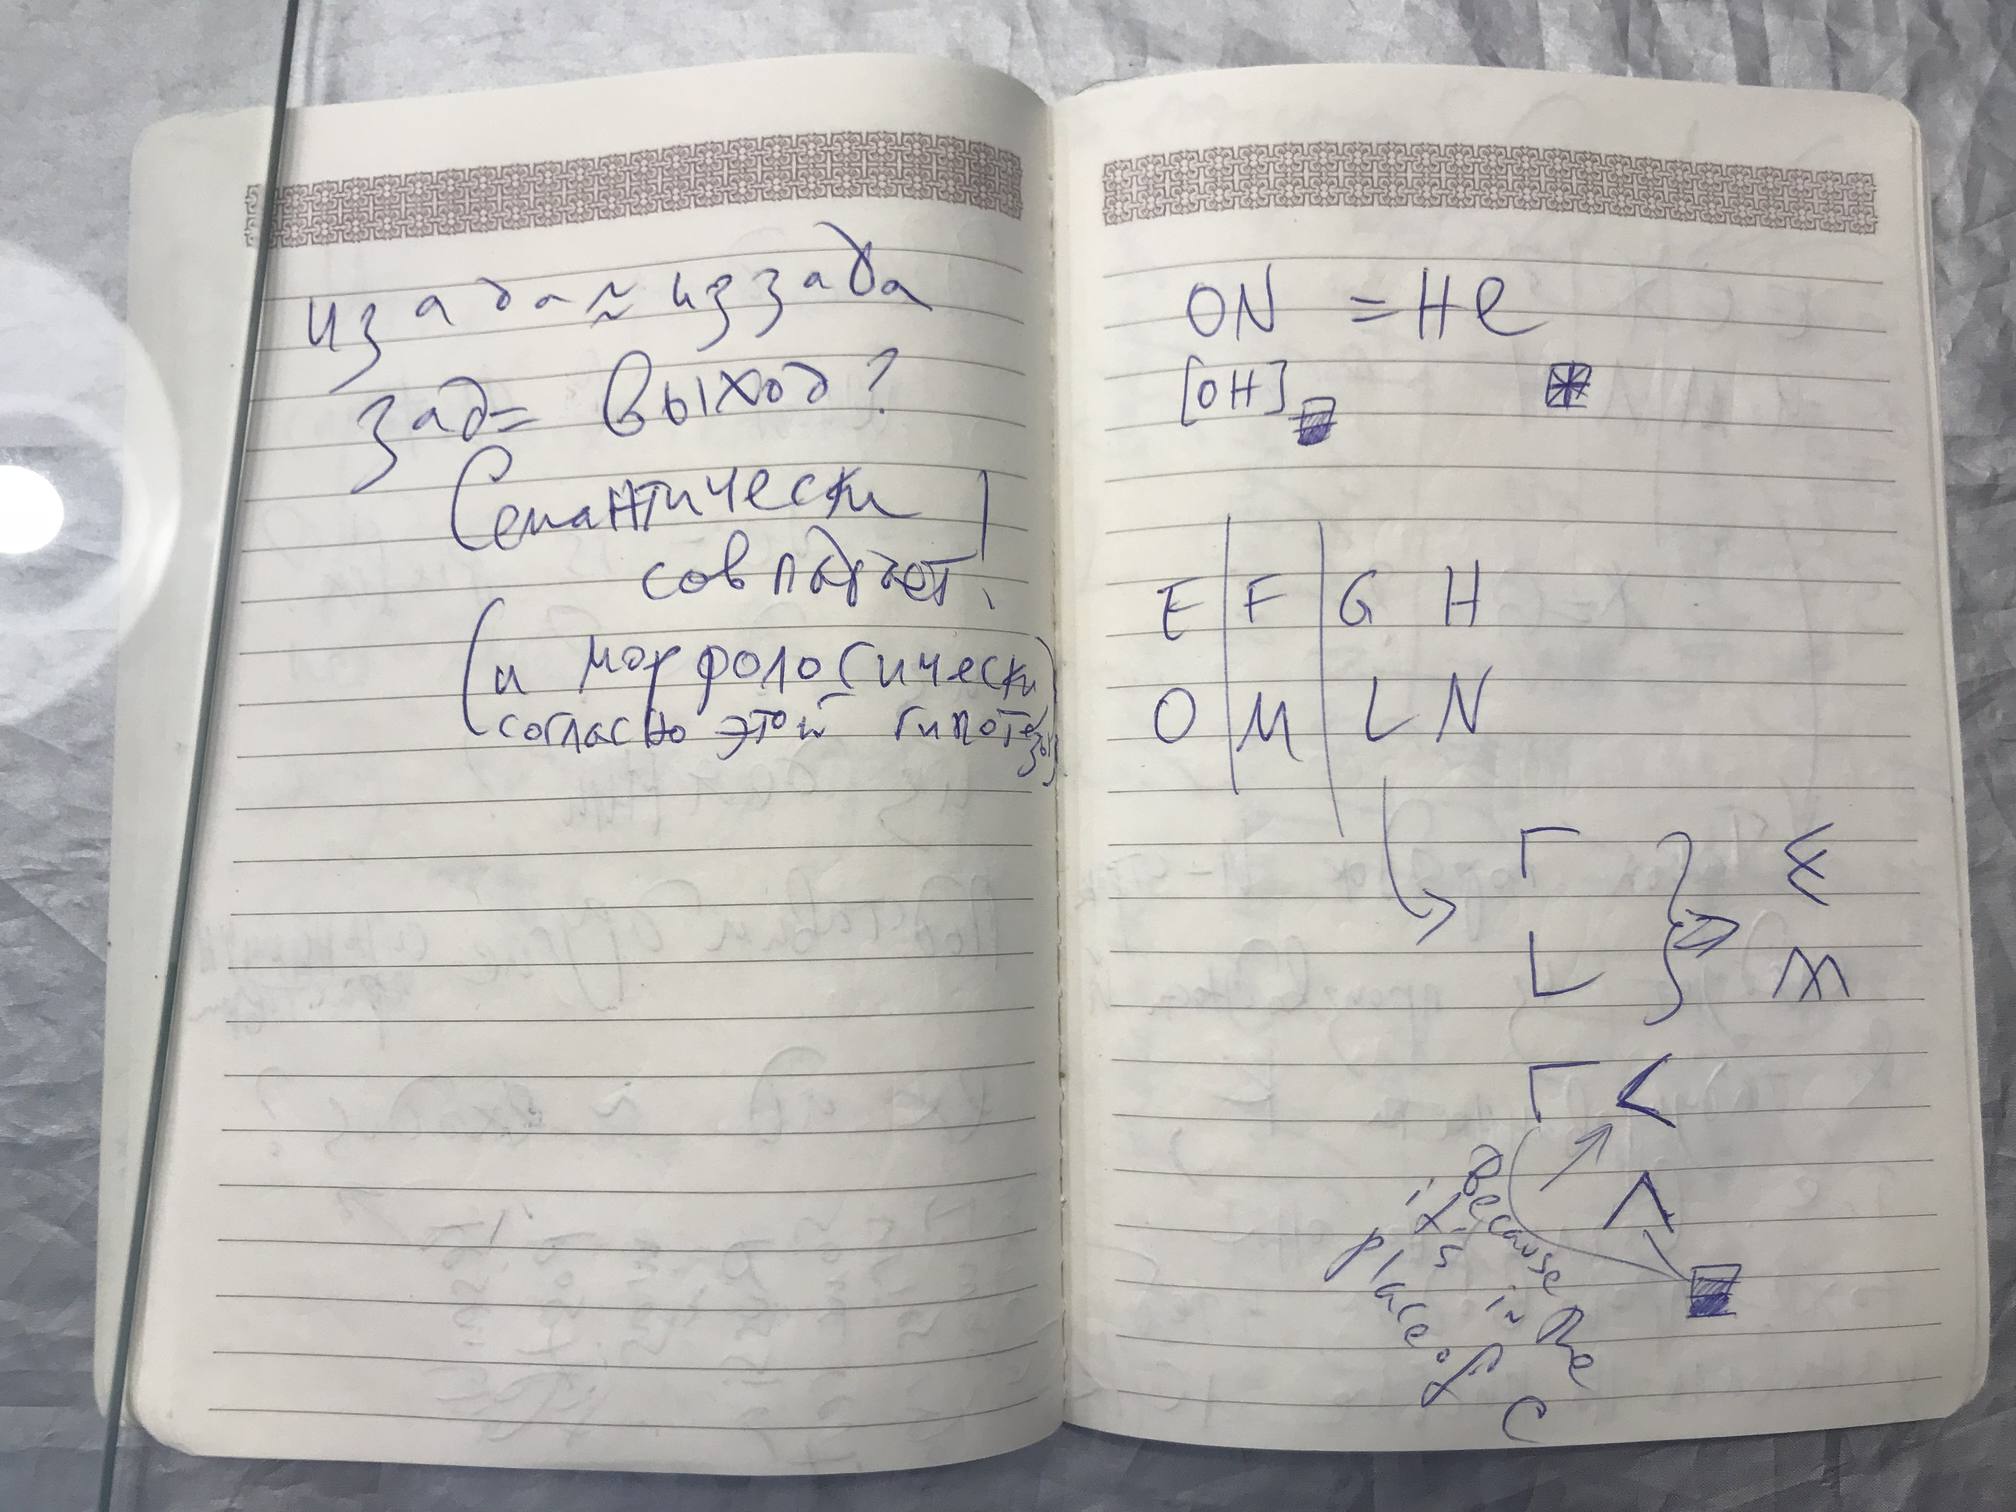 из ада ≈ из зада
зад = выход?
Семантически
совпадает.
(и морфологически
согласно этой гипотезы)
ON = He
[OH]
E F G H
O M L N
Г
L
Г <
Λ
Because
it's in the
place of
C